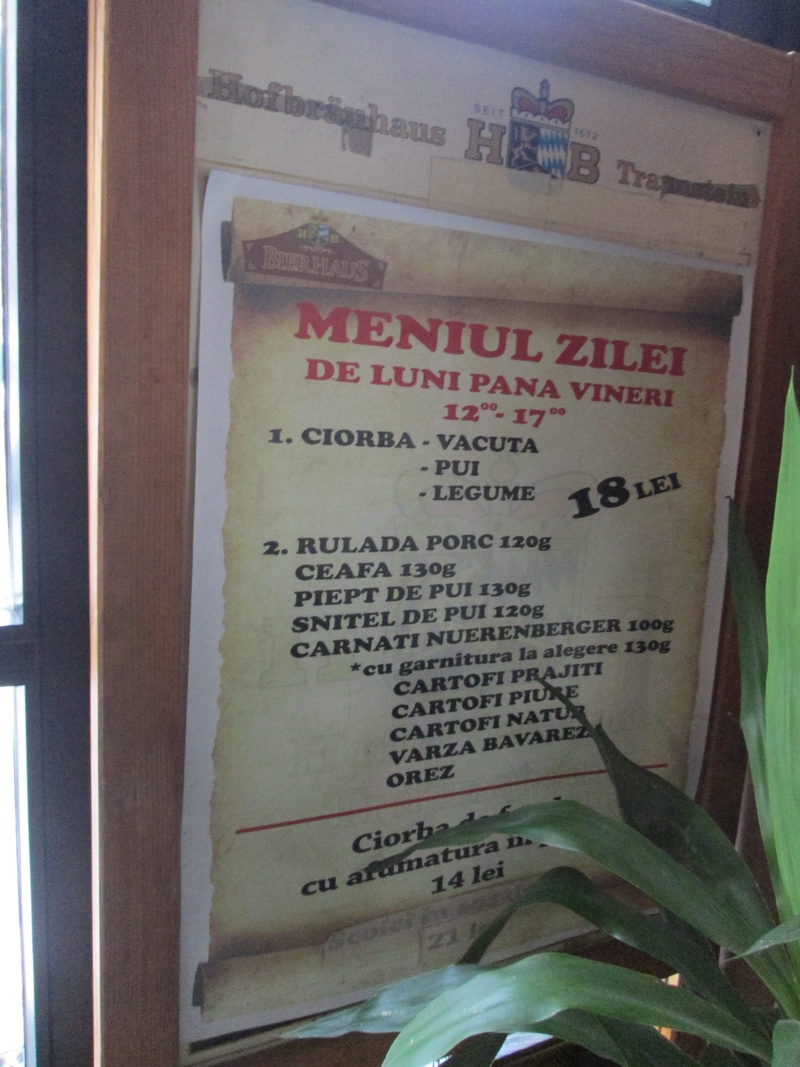 Hofbräuhaus SEIT HB 1612 Traunstein
H B
BIERHAUS
MENIUL ZILEI
DE LUNI PANA VINERI
12⁰⁰- 17⁰⁰
1. CIORBA - VACUTA
- PUI
- LEGUME
18 LEI
2. RULADA PORC 120g
CEAFA 130g
PIEPT DE PUI 130g
SNITEL DE PUI 120g
CARNATI NUERENBERGER 100g
*cu garnitura la alegere 130g
CARTOFI PRAJITI
CARTOFI PIURE
CARTOFI NATUR
VARZA BAVAREZA
OREZ
Ciorba de
cu afumatura
14 lei
21